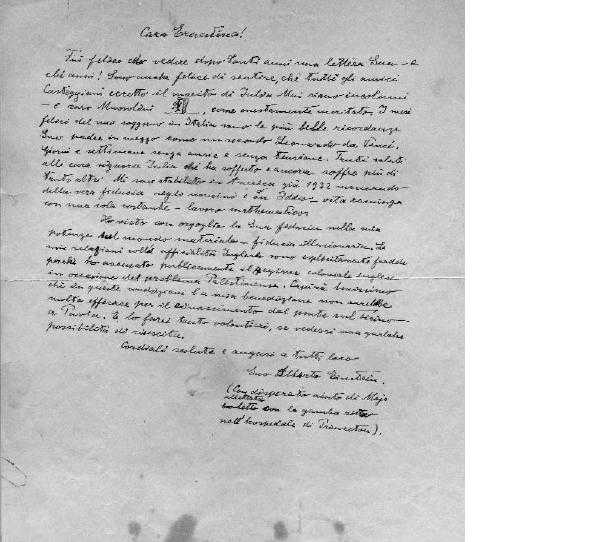 Cara Ernestina!
Fui felice di vedere dopo tanti anni una lettera Sua - e
che anni! Sono anche felice di sentire, che tutti gli amici
Casteggiani eccetto il marito di Julia Mai siano incolumi
- e caro Mussolini, come onestamente meritato. I mesi
felici del mio soggiorno in Italia sono le più belle ricordanze
Suo padre in mezzo come un secondo Leonardo da Vinci,
Giorni e settimane senza ansie e senza tensione. Tanti saluti
alla cara signora Julia che ha sofferto e ancora soffre più di
tutti altri. Mi sono stabilito in America già 1932 mancando
della vera fiducia negli uomini e in Iddio - vita
con una sola costante - lavoro mathematico.
Ho visto con orgoglio la Sua fiducia nella mia
potenza nel mondo materiale - fiducia illusionaria. Le
mie relazioni colle officialità Inglese sono
perchè ho accusato publicamente il regime coloniale inglese
in occasione del problema Palestinense. Capirà benissimo
che in queste condizioni la mia benedizione non sarebbe
molto efficace per il rinascimento dal ponte sul Ticino
a Pavia. E lo farei tanto volontieri, se vedessi una qualche
possibilità di riuscita.
Cordiali saluti e auguri a tutti loro
Suo Alberto Einstein.
(Con disperato aiuto di Maja
a letto con la gamba rotta
nell'hospedale di Princeton).